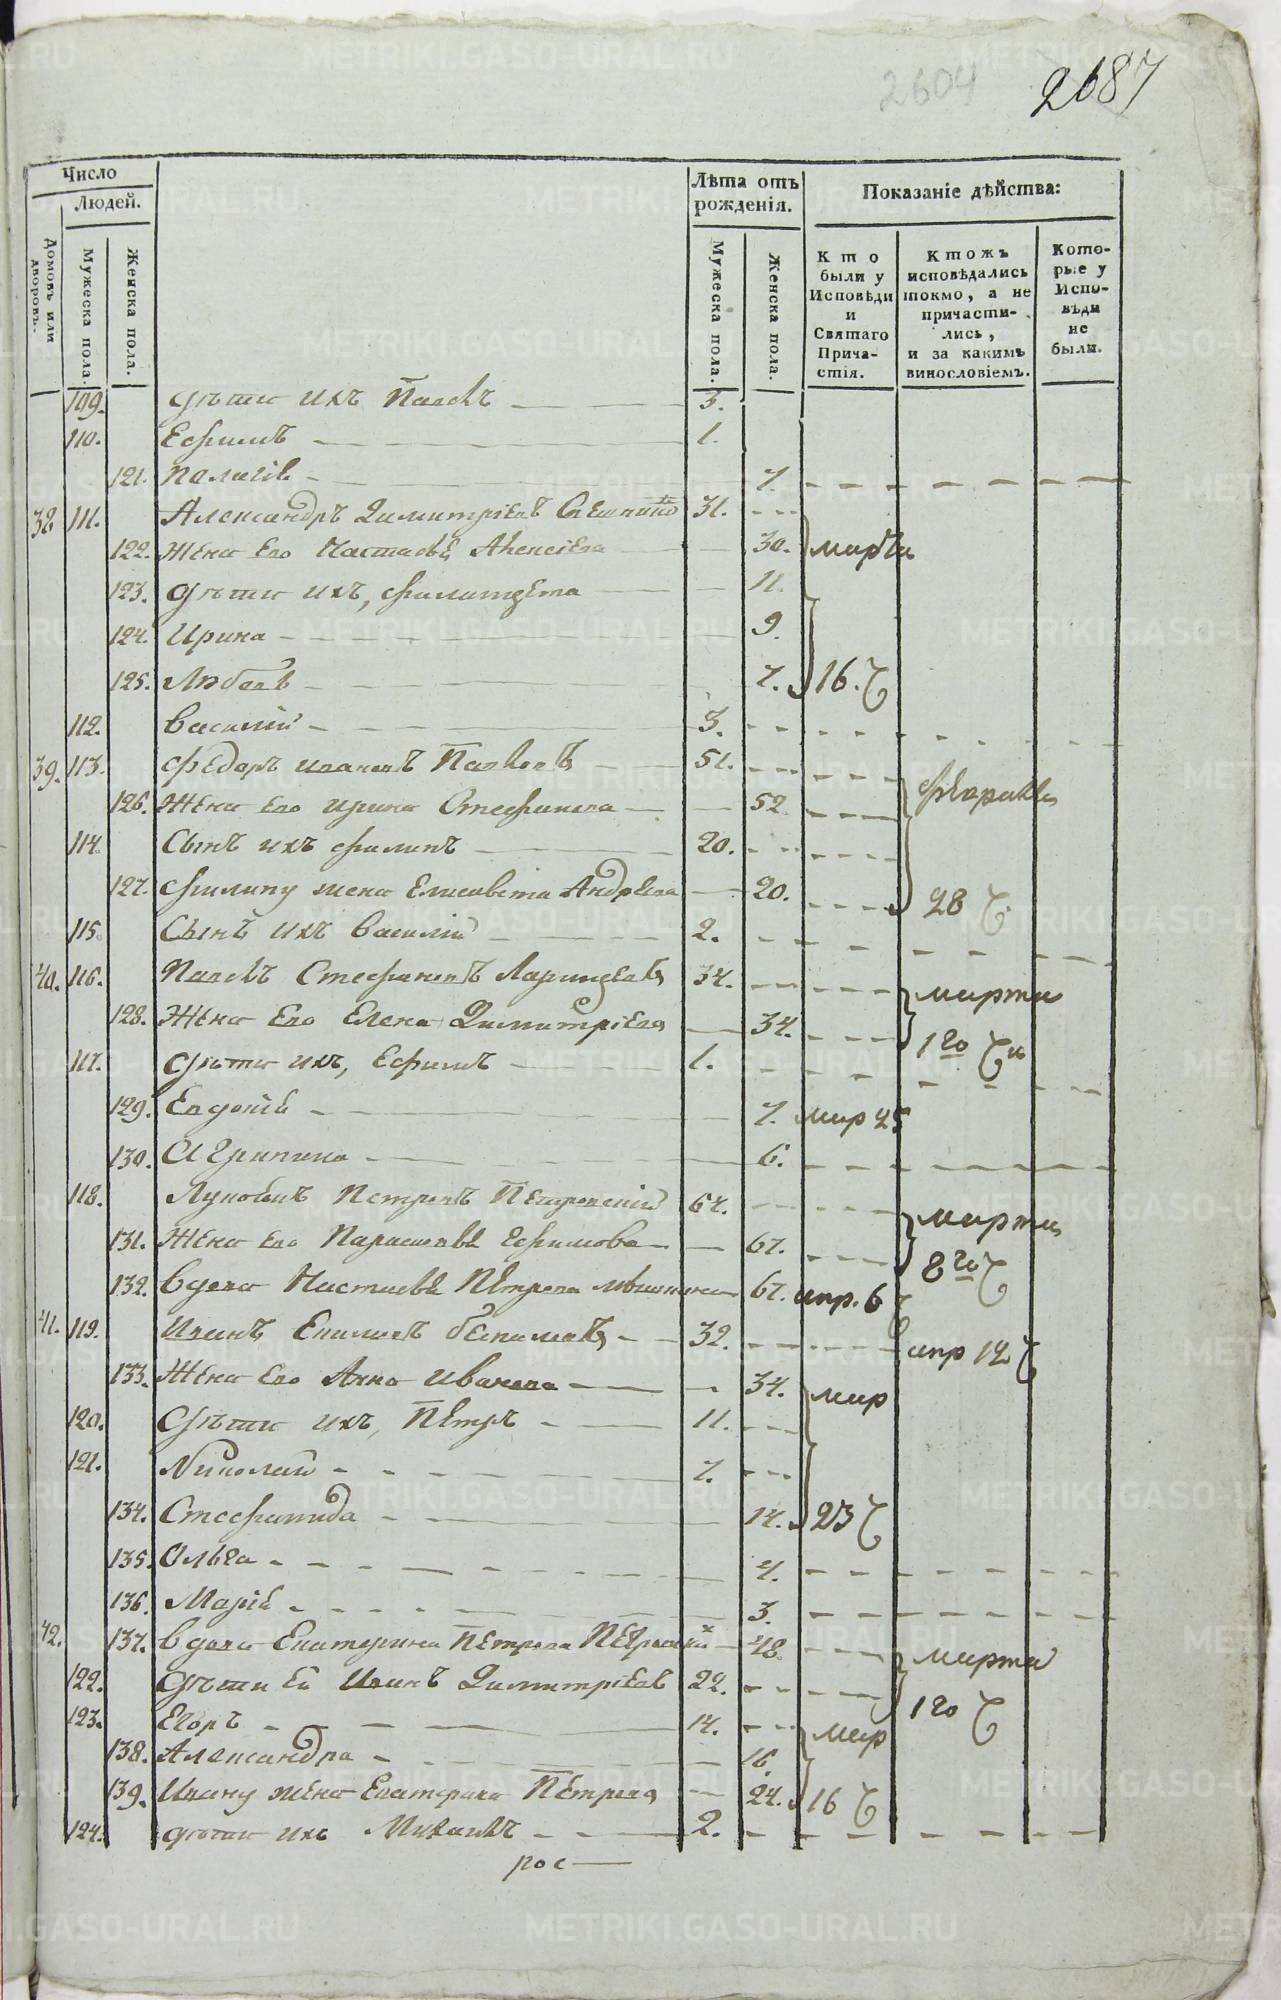 2604 2687
Число
Людей.
Домовъ или дворовъ.
Мужеска пола.
Женска пола.
Лѣта отъ рожденія.
Мужеска пола.
Женска пола.
Показаніе дѣйства:
Кто были у Исповѣди и Святаго Причастія.
Ктожъ исповѣдались токмо, а не причастились, и за какимъ винословіемъ.
Которые у Исповѣди не были.
109. дѣти ихъ Павелъ 3.
110. Ефимъ 1.
121. Палагія 7.
38. 111. Александръ Димитріевъ 31.
122. Жена его Настасья Алексіева 30. марта
123. дѣти ихъ, 11.
124. Ирина 9.
125. Любовь 7. 16.
112. Василій 3.
39. 113. Федоръ Ивановъ 51. февраля
126. Жена его Ирина Стефанова 52
114. Сынъ ихъ филипъ 20.
127. филипу жена Елисавета Андреева 20. 28
115. Сынъ ихъ Василій 2.
40. 116. Павелъ Стефановъ 34. марта
128. Жена его Елена Димитріева 34. 1го
117. дѣти ихъ, Ефимъ 1.
129. Евдокія 7. мар 25
130. Агрипина 6.
118. Петровъ 64. марта
131. Жена его Парасковья Ефимова 67. 8го
132. Вдова Настасья Петрова 67. апр. 6
41. 119. Иванъ 32. апр 12
133. Жена его Анна Иванова 34. мар
120. дѣти ихъ, Петръ 11.
121. Николай 7.
134. Стефанида 14. 23
135. Ольга 4.
136. Марія 3.
42. 137. Вдова Екатерина Петрова 48. марта
122. дѣти ея Иванъ Димитріевъ 22. 1го
123. Егоръ 14. мар
138. Александра 16.
139. Ивану жена Екатерина Петрова 24. 16
124. дѣти ихъ Михаилъ 2.
рос
METRIKI.GASO-URAL.RU